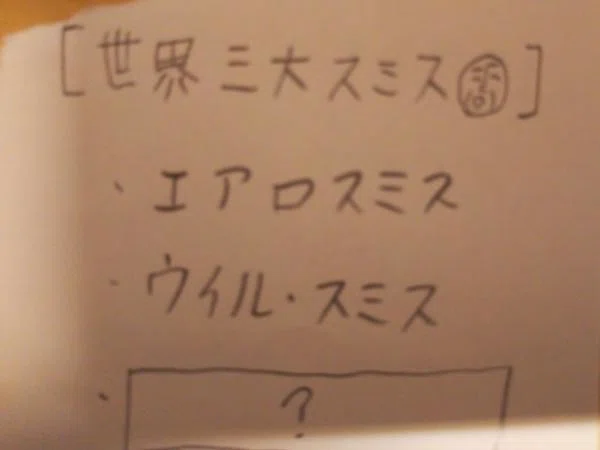 [世界三大スミス]
・エアロスミス
・ウィル・スミス
・?